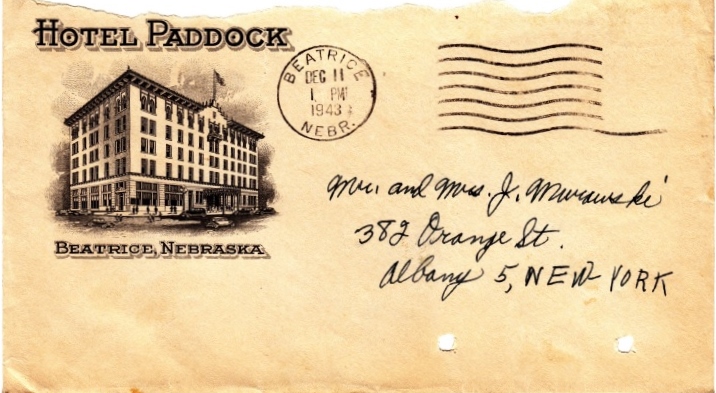 HOTEL PADDOCK
BEATRICE, NEBRASKA
BEATRICE
DEC 11
1 PM
1943
NEBR.
Mr. and Mrs. J. Murawski
382 Orange St.
Albany 5, NEW YORK